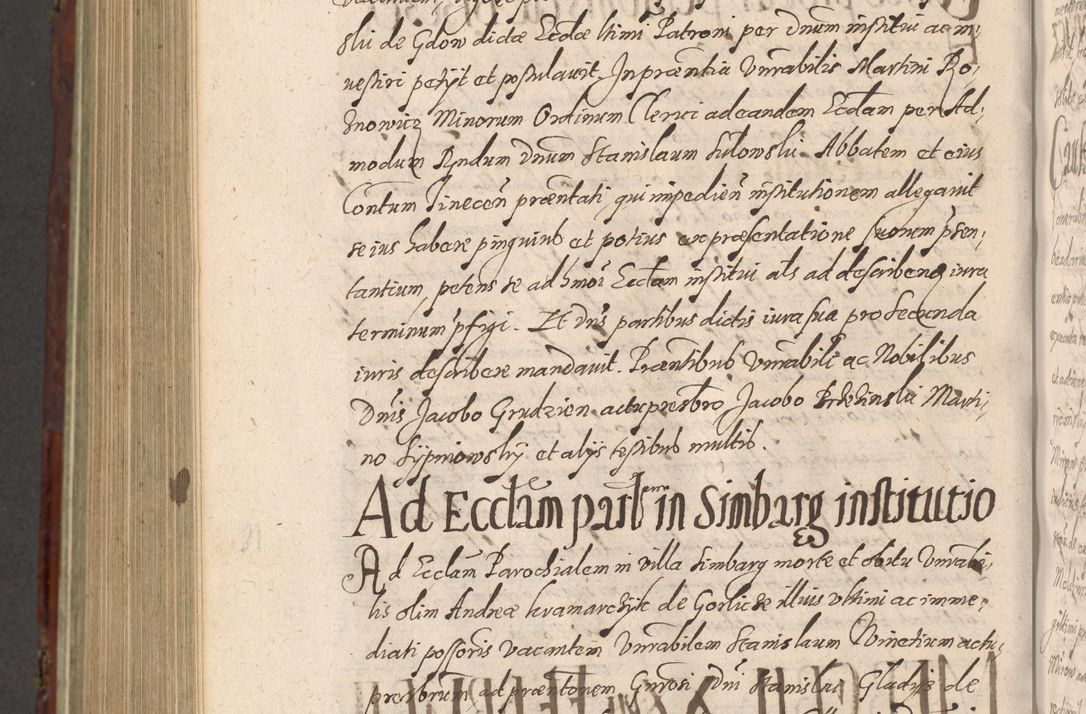 slii de Gdow dictæ Ecclæ ultimi Patroni per Dnum institui ac in,
vestiri petijt et postulavit, In præntia Vnrabilis Martini Ro,
znowicz Minorum Ordinum Clerici ad eandem Ecclam per Ad,
modum Rndum Dnum Stanislaum Sulowski Abbatem et eius
Contum Tinecen præntati, qui impedien institutionem allegavit
se ius habere pinguius et potius ex præsentatione suorum præsen,
tantium, petens se ad hmoi Ecclam institui als ad describend iura
terminum pfigi. Et Dns partibus dictis iura sua pro secunda
iuris describere mandavit. Præntibus Vnrabili ac Nobilibus
Dnis Jacobo Grudzien actu presbro, Jacobo Marti,
no Lypniowsky et alys testibus multis.
Ad Ecclam parlem in Simbarg institutio
Ad Ecclam Parochialem in villa Simbarg morte et obitu Vnrabi,
lis olim Andreæ kramarczyk de Gorlicze illius vltimi ac imme,
diati possoris vacantem Vnrabilem Stanislaum actu,
presbrum ad præntonem Gnrosi Dni Stanislai Gladisz de